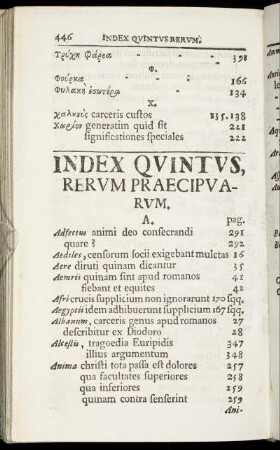 446 INDEX QVINTVS RERVM.
Τρύχη Φάρεα 391
Φ.
Φούρκα 166
Φυλακὴ ἐσωτέρα 134
X.
χαλκοῦς carceris custos 135.138
Χωρίον generatim quid sit 221
significationes speciales 222
INDEX QVINTVS,
RERVM PRAECIPVA-
RVM.
A. pag.
Adfectus animi deo consecrandi 291
quare? 292
Aediles, censorum socii exigebant mulctas 16
Aere diruti quinam dicantur 35
Aemris quinam sint apud romanos 41
fiebant et equites 42
Afri crucis supplicium non ignorarunt 170 sqq.
Aegyptii idem adhibuerunt supplicium 167 sqq.
Albanum, carceris genus apud romanos 27
describitur ex Diodoro 28
Alcestis, tragoedia Euripidis 347
illius argumentum 348
Anima christi tota passa est dolores 257
qua facultates superiores 258
qua inferiores 259
quinam contra senserint 259
Ani-